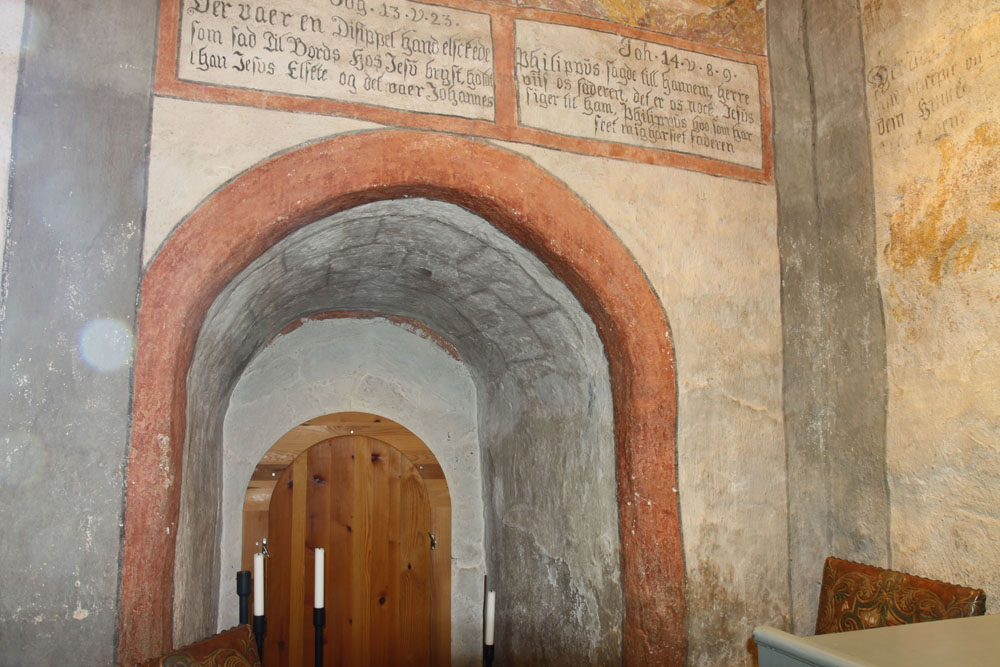 Joh. 13. V. 23.
Der vaer en Disippel hand elsckede
som sad Til Bords Hos Jesŭ bryst, hŭilken
i han Jesus Elskte og det vaer Johannes
Joh. 14. v. 8. 9.
Philippŭs sagde till hannem, herre
viis os faderen, det er os nock, Jesŭs
siger til ham, Philippŭs hvo som har
seet mig har seet faderen
dem